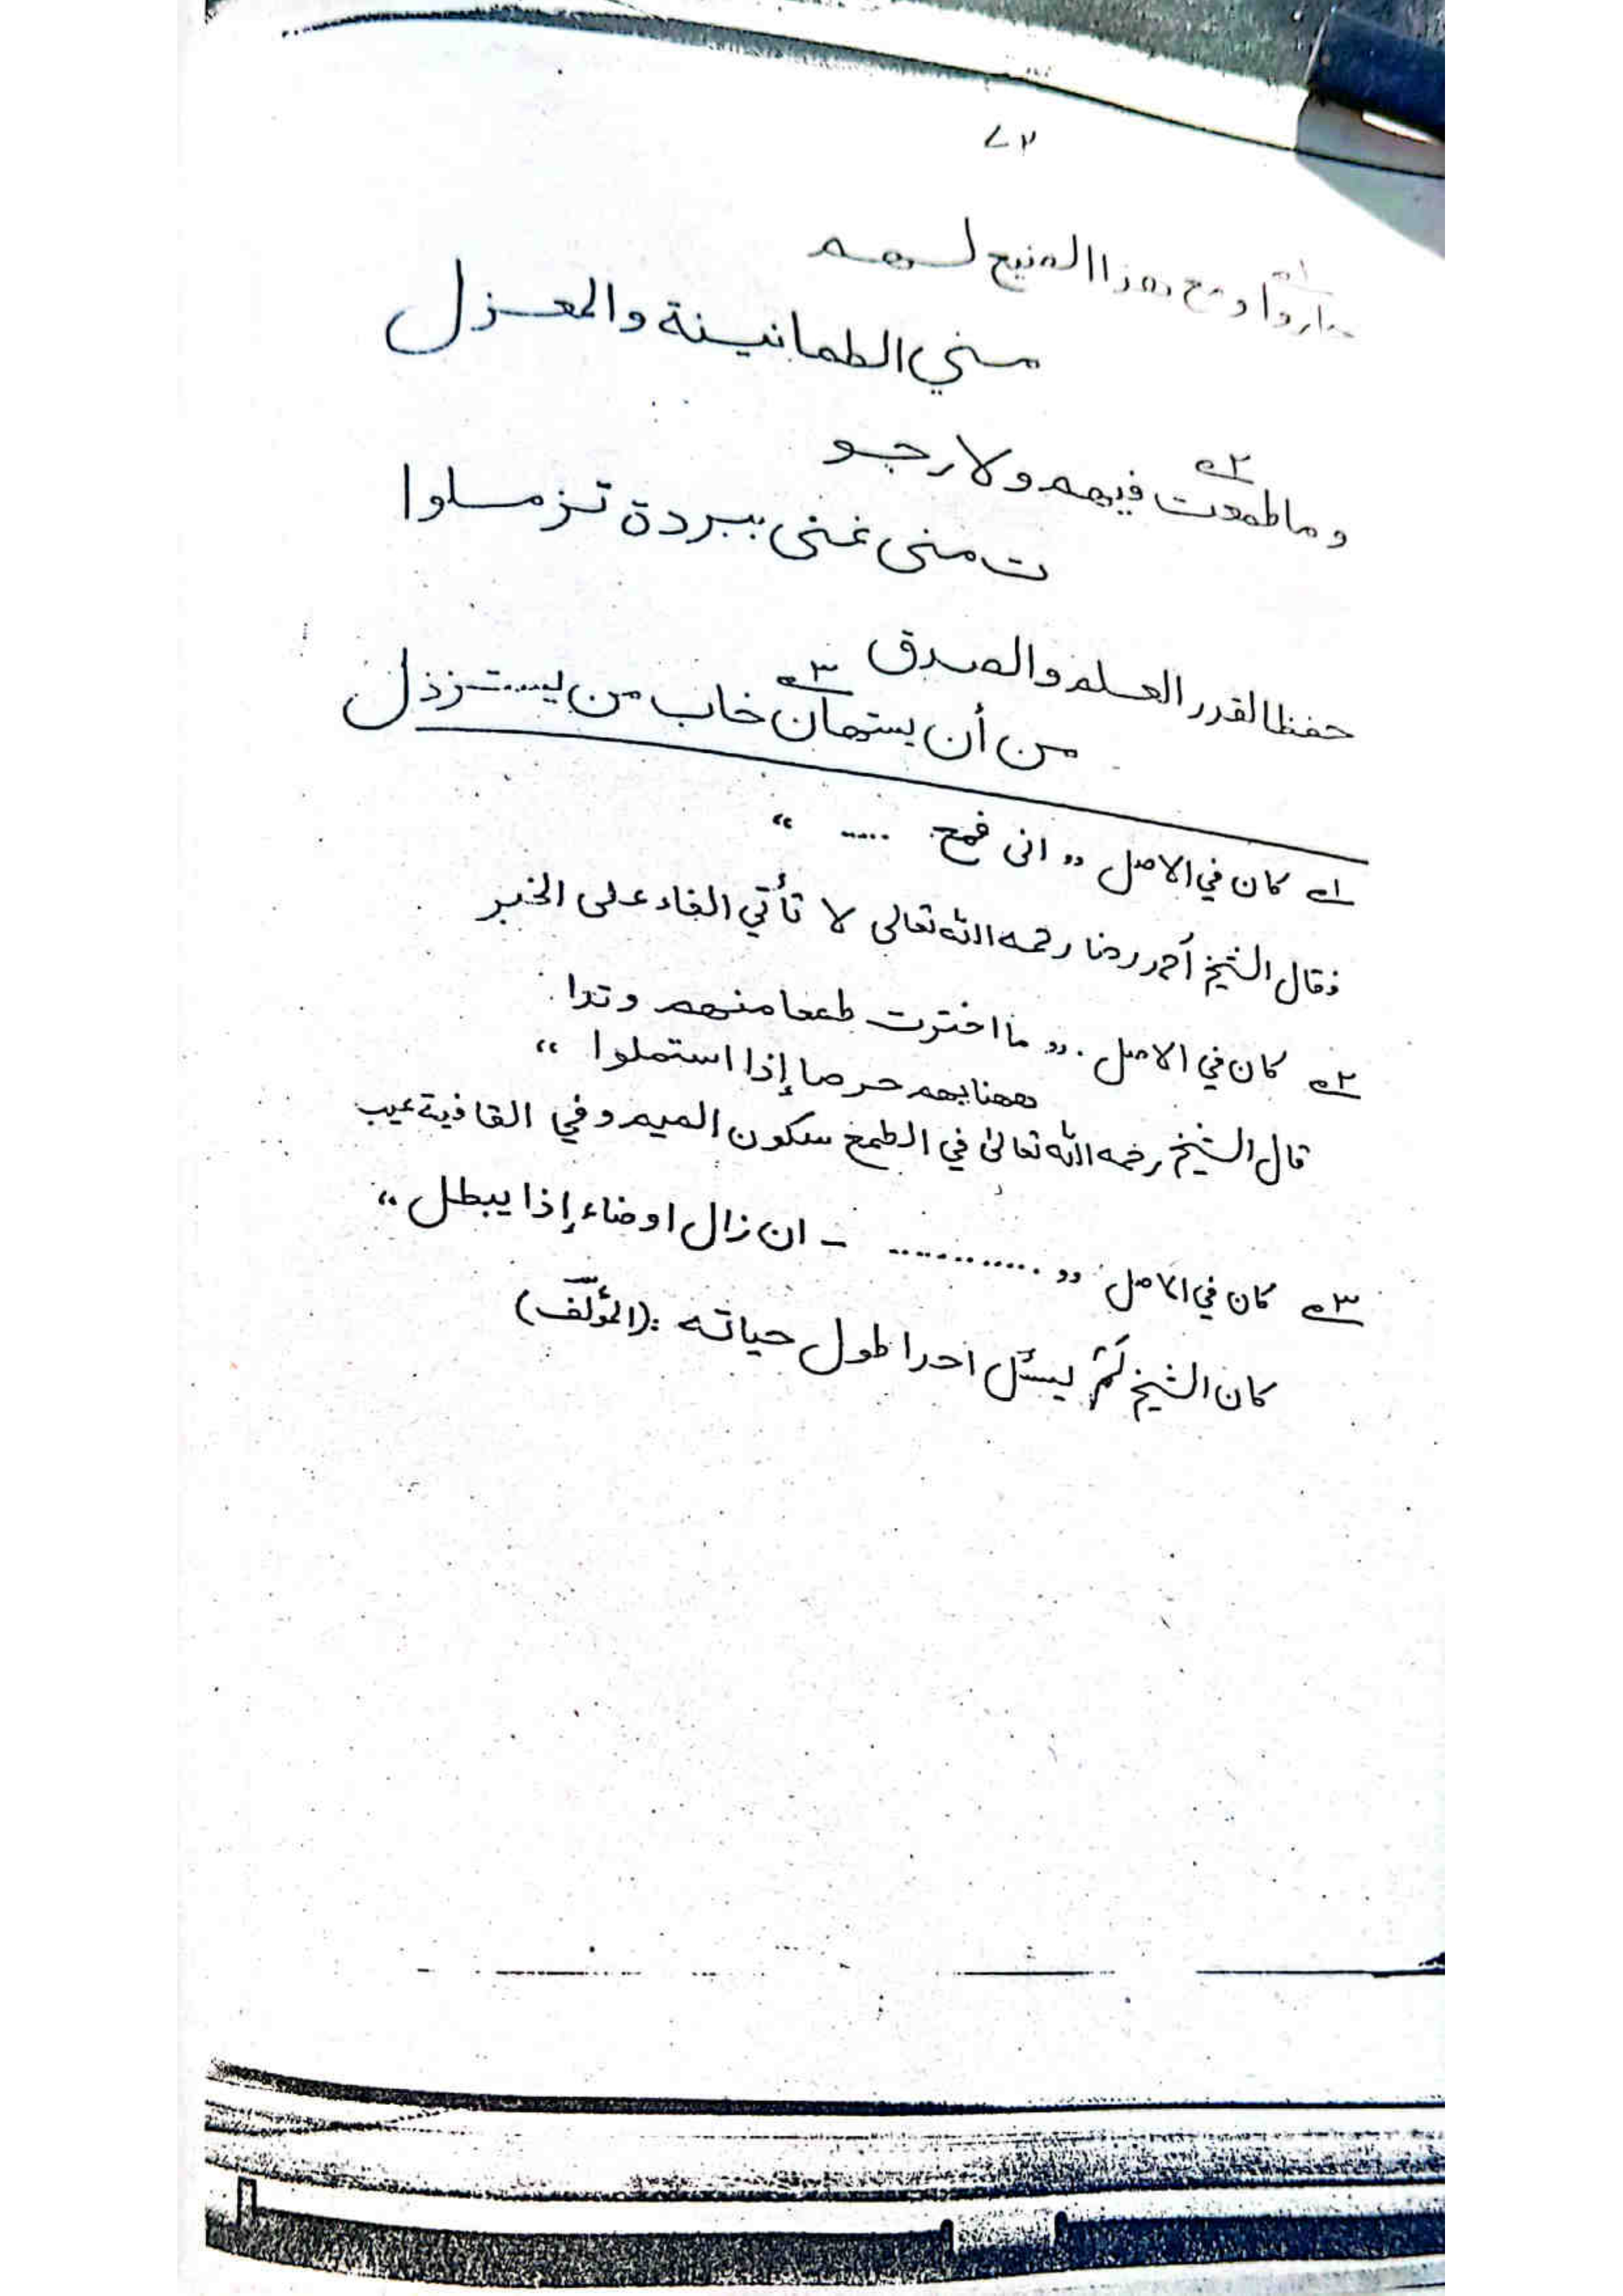 ٧٣
ومع هذا الصنيع لهم
مني الطمانينة والمعزل
وما طمعت فيهم ولا رجو ٢
ت منى غنى ببردة تزملوا
حفظا لقدر العلم والصدق
من أن يستهان خاب من يستزذل ٣
١ كان في الاصل ،، انى فمع ..... ،،
فقال الشيخ أحمد رضا رحمه الله تعالى لا تأتي الفاء على الخبر
٢ كان في الاصل ،، ما اخترت طمعا منهم وتدا
ههنا بهم حرصا إذا استملوا ،،
قال الشيخ رحمه الله تعالى في الطمع سكون الميم وفي القافية عيب
٣ كان في الاصل ،، ............ - ان زال اوضاء إذا يبطل ،،
كان الشيخ لم يسئل احدا طول حياته : (المؤلّف)